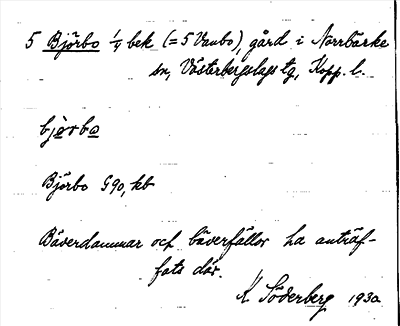 5 Björbo 1/4 bek (= 5 Vanbo), gård i Norrbärke
sn, Västerbergslags tg, Kopp. l.
bjòrbo
Björbo G90, kb
Bäverdammar och bäverfällor ha anträf-
fats där.
K Söderberg 1930